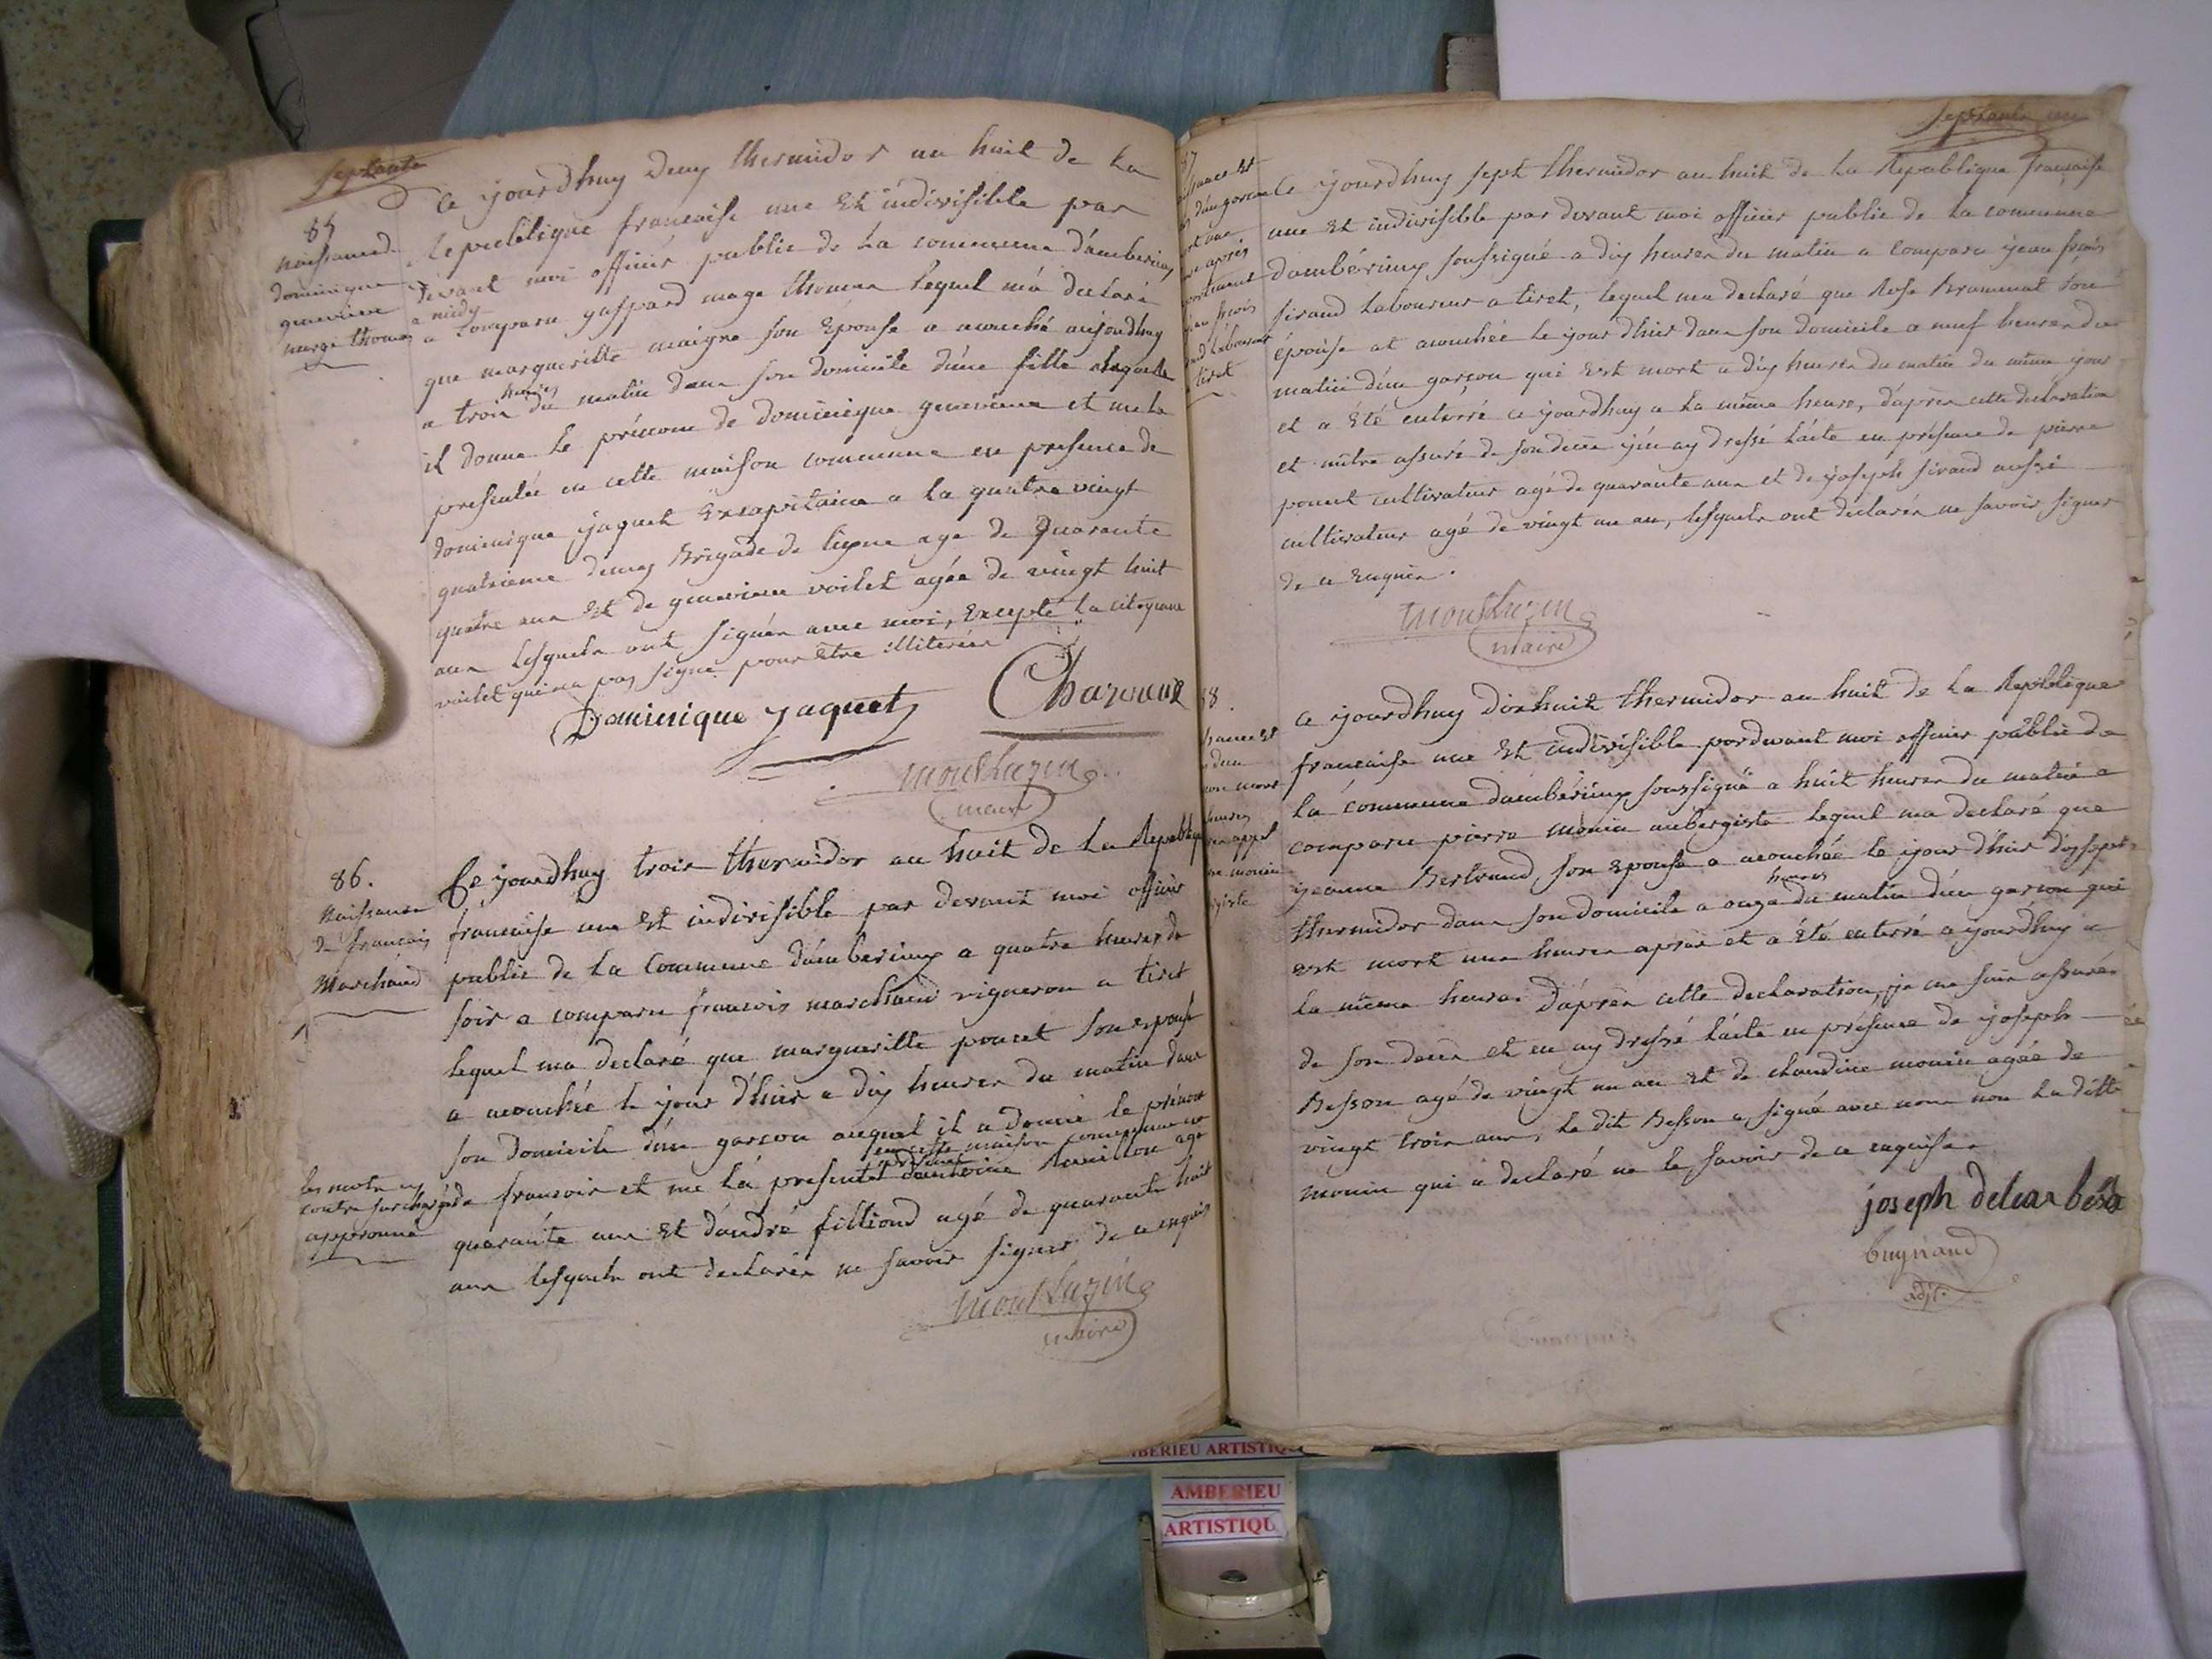 septante
85
naissance d.
dominique
genevieve
mage thomas
Ce yourdhuy deux thermidor an huit de la
Republique francaise une Et indivisible par
devant moi officier public de la commune dámberieux
a midy
a comparu gaspard mage thomas lequel má declaré
que margueritte maigre son Epouse a acouché aujourdhuy
a trois heures du matin dans son domicile dúne fille a laquelle
il donne le prénom de dominique genevieve et me la
presentée en cette maison commune en presence de
dominique yaquet Excapitaine a la quatre vingt
quatrieme demy Brigade de ligne age de quarante
quatre ans Et de genevieve voilet agée de vingt huit
ans lesquels ont signés avec moi, Excepté la citoyenne
voilet qui na pas signé pour être illiterée
Dominique yaquet
montluzin
maire
86.
Naissance
de francois
Marchand
Ce yourdhuy trois thermidor an huit de la Republique
francaise une Et indivisible par devant moi officier
public de la Commune dámberieux a quatre heures de
soir a comparu francois marchand vigneron a tiret
lequel ma declaré que margueritte poncet son epouse
a acouchée le your d'hier a dix heures du matin dans
son domicile dún garcon auquel il a donné le prénom
en cette maison commune en
présence
de francois et me lá presenté dántoine Revillon age
les mots en
contre surchargés
approuvé
quaránte ans Et dándré filliond agé de quarante huit
ans lesquels ont declarés ne savoir signer de ce enquis
montluzin
maire
septante une
Ce yourdhuy sept thermidor an huit de la Republique francaise
une Et indivisible par devant moi officier public de la commune
dambérieux soussigné a dix heures du matin a comparu yean frcois
sirand Laboureur a tiret, lequel ma declaré que Rose Brammal son
épouse at acouchée le your dhier dans son domicile a neuf heures du
matin dún garçon qui Est mort a dix heures du matin du même your
et a Eté enterré ce yourdhuy a la même heure, dáprès cette declaration
et mêtre assuré de son decès yén ay dressé lácte en présence de pierre
poncet cultivateur agé de quarante ans et de yoseph sirand aussi
cultivateur agé de vingt un an, lesquels ont declarés ne savoir signer
de ce Enquis.
montluzin
maire
Ce yourdhuy dixhuit thermidor an huit de la Republique
francaise une Et indivisible pardevant moi officier public de
la commune dámbérieux soussigné a huit heures du matin a
comparu pierre monin aubergiste lequel ma declaré que
yeanne Bertrand, son Epouse a acouchée le your d'hier dixsept
thermidor dans son domicile a onze heures du matin dún garcon qui
est mort une heure après et a Eté enterré ce yourdhuy a
la même heure. Dáprès cette declaration, je me suis assuré
de son decès et en ay dressé lácte en présence de yoseph
Besson agé de vingt un an Et de claudine monin agée de
vingt trois ans, le dit Besson a signé avec nous non la ditte
monin qui a declaré ne le savoir de ce enquise.
joseph
adjt.
AMBERIEU ARTISTIQU
AMBERIEU
ARTISTIQU